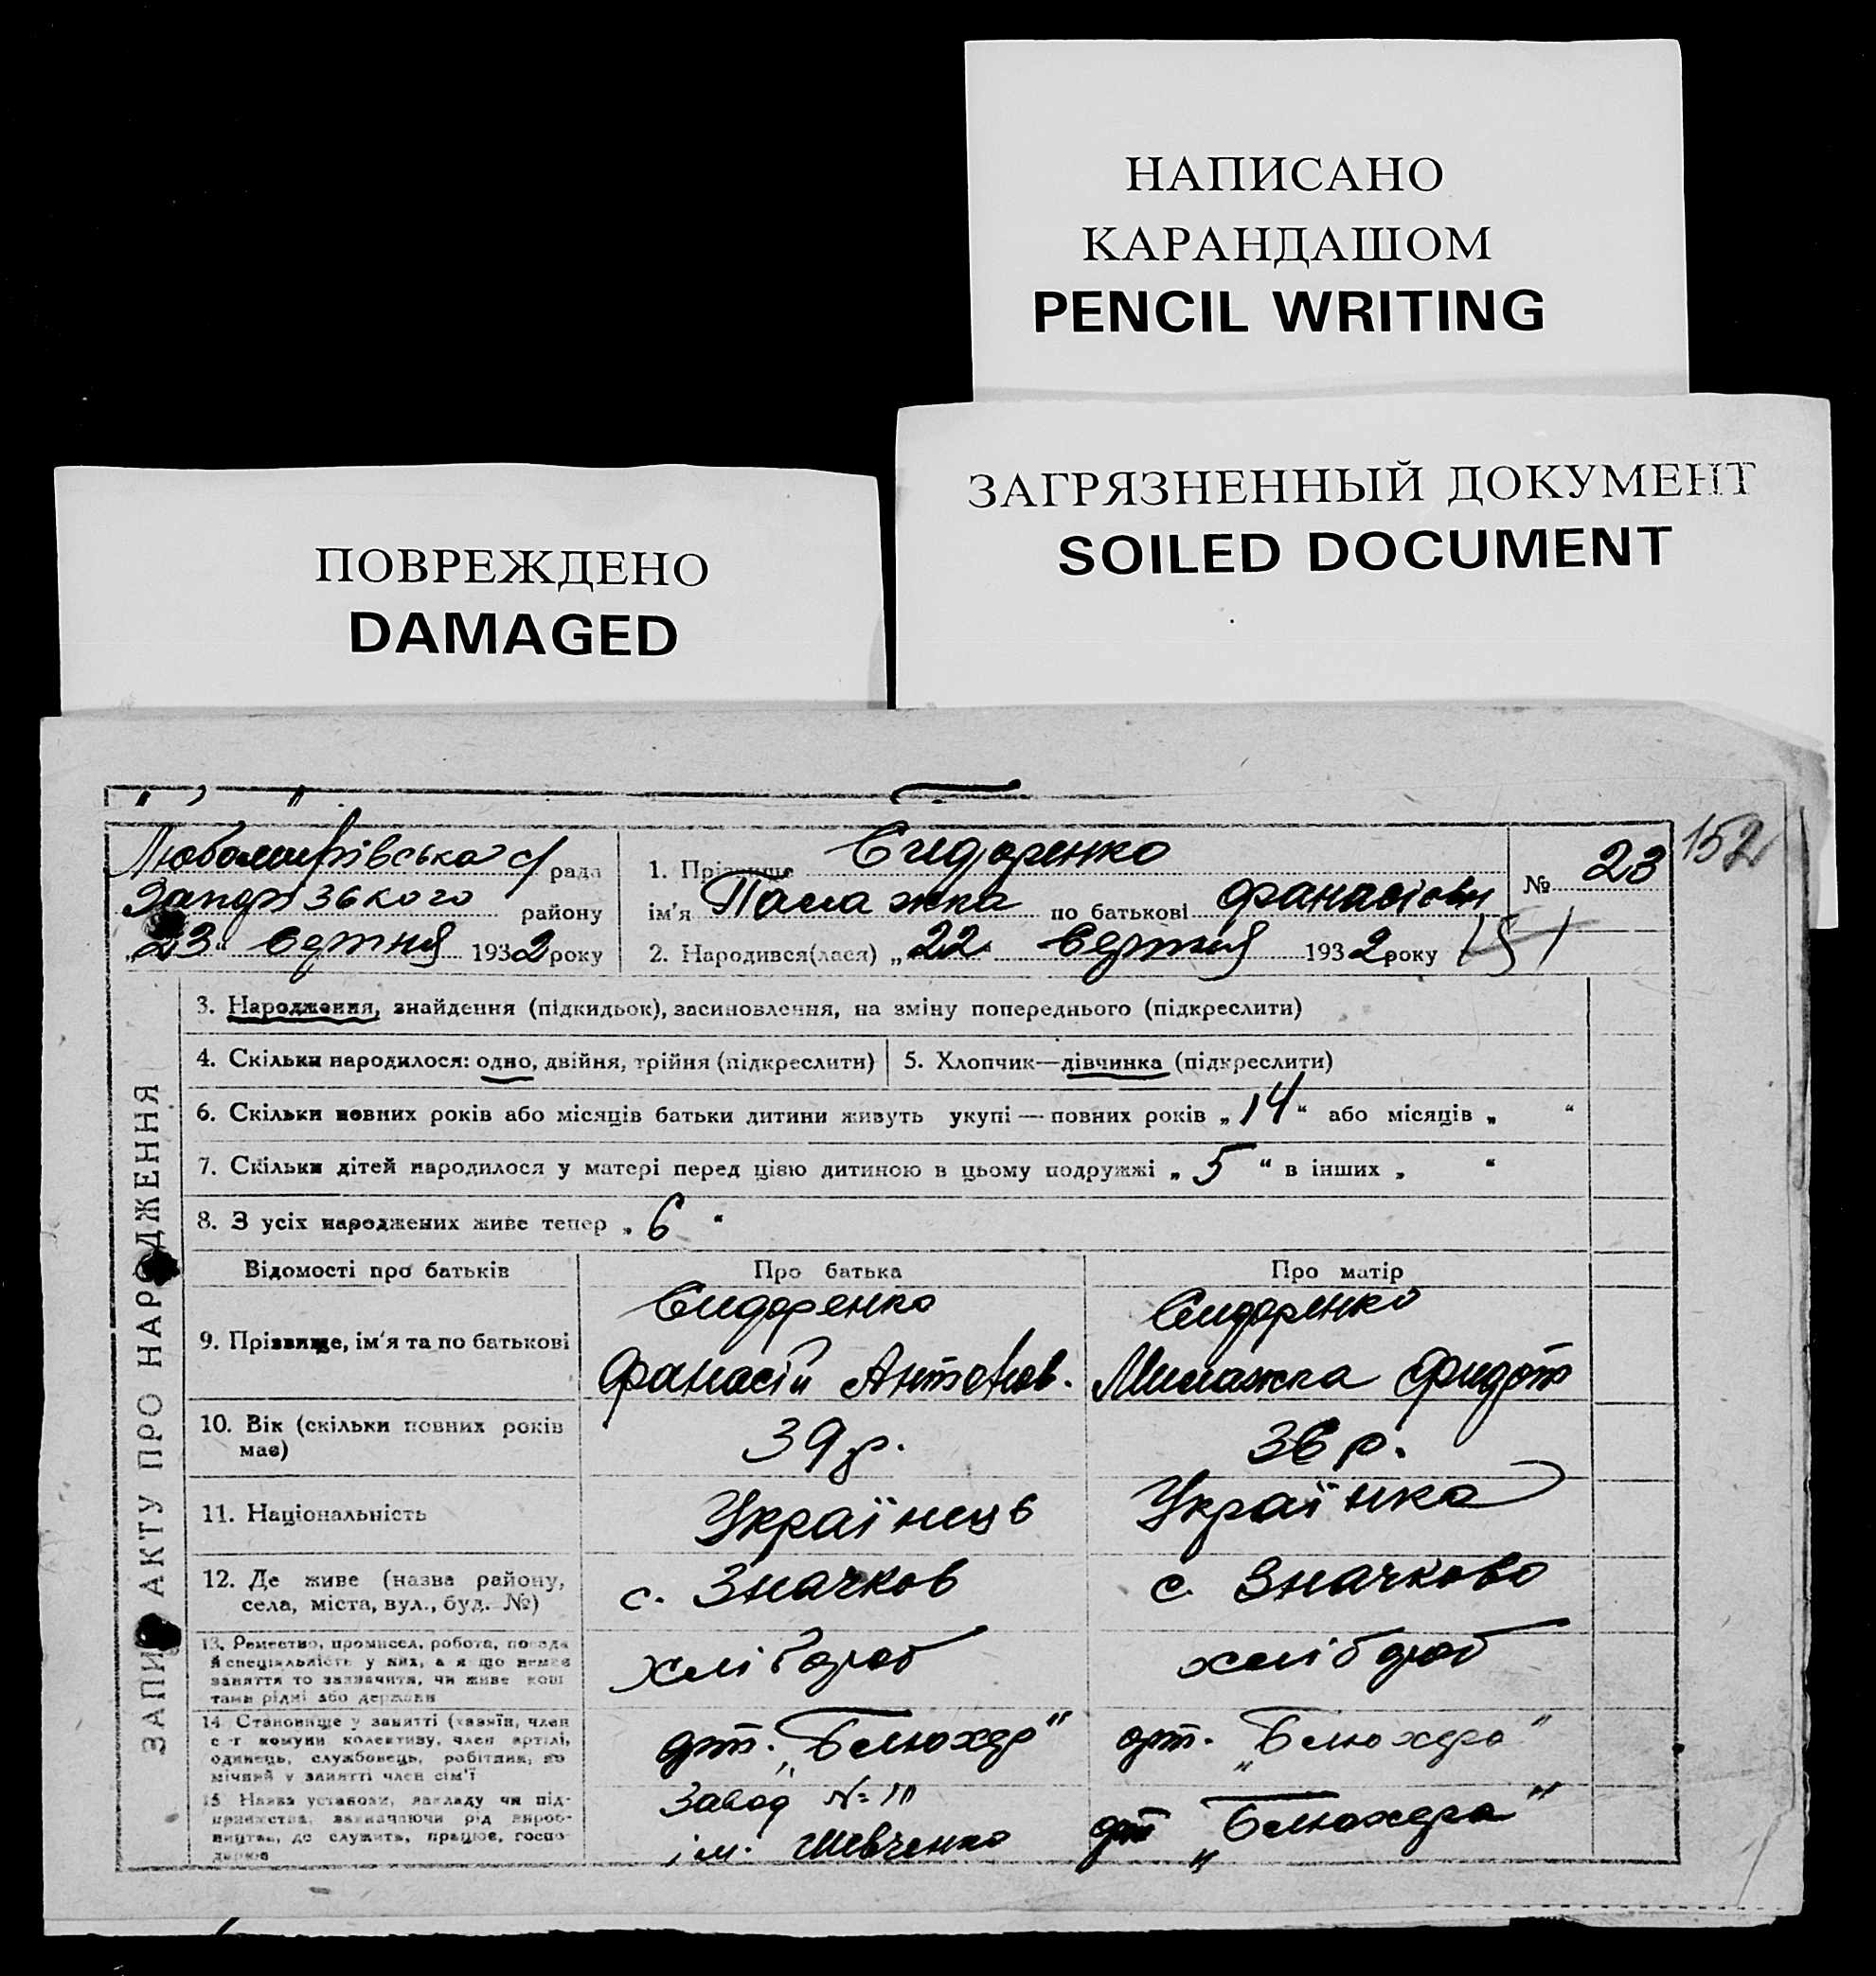 НАПИСАНО
КАРАНДАШОМ
PENCIL WRITING
ЗАГРЯЗНЕННЫЙ ДОКУМЕНТ
SOILED DOCUMENT
ПОВРЕЖДЕНО
DAMAGED
152
Любомирівська с/рада
району
"23" Серпня 1932 року
1. Прізвище Сидоренко
ім'я по батькові Фанасіовн
№ 23
2. Народився(лася) "22" Серпня 1932 року 151
ЗАПИС АКТУ ПРО НАРОДЖЕННЯ
3. Народження, знайдення (підкидьок), засиновлення, на зміну попереднього (підкреслити)
4. Скільки народилося: одно, двійня, трійня (підкреслити)
5. Хлопчик—дівчинка (підкреслити)
6. Скільки повних років або місяців батьки дитини живуть укупі — повних років „14“ або місяців „ “
7. Скільки дітей народилося у матері перед цією дитиною в цьому подружжі „5“ в інших „ “
8. З усіх народжених живе тепер „6“
Відомості про батьків
Про батька
Про матір
9. Прізвище, ім'я та по батькові
Сидоренко
Фанасій Антонов.
Сидоренко
Милажка Фидот
10. Вік (скільки повних років має)
39 р.
36 р.
11. Національність
Українець
Українка
12. Де живе (назва району,
села, міста, вул., буд. №)
с. Значков
с. Значково
13. Ремество, промисел, робота, посада
й спеціяльність у них, а якщо немає
заняття то зазначити, чи живе кош
тами рідні або держави
хлібороб
хлібороб
14. Становище у занятті (хазяїн, член
с-г комуни колективу, член артілі,
одинець, службовець, робітник, по
мічний у занятті член сім'ї
арт. „Блюхер“
арт. „Блюхера“
15. Назва установи, закладу чи під-
приємства, зазначаючи рід вироб-
ництва, де служить, працює, госпо-
дарює
Завод №
ім. Шевченко
арт „Блюхера“